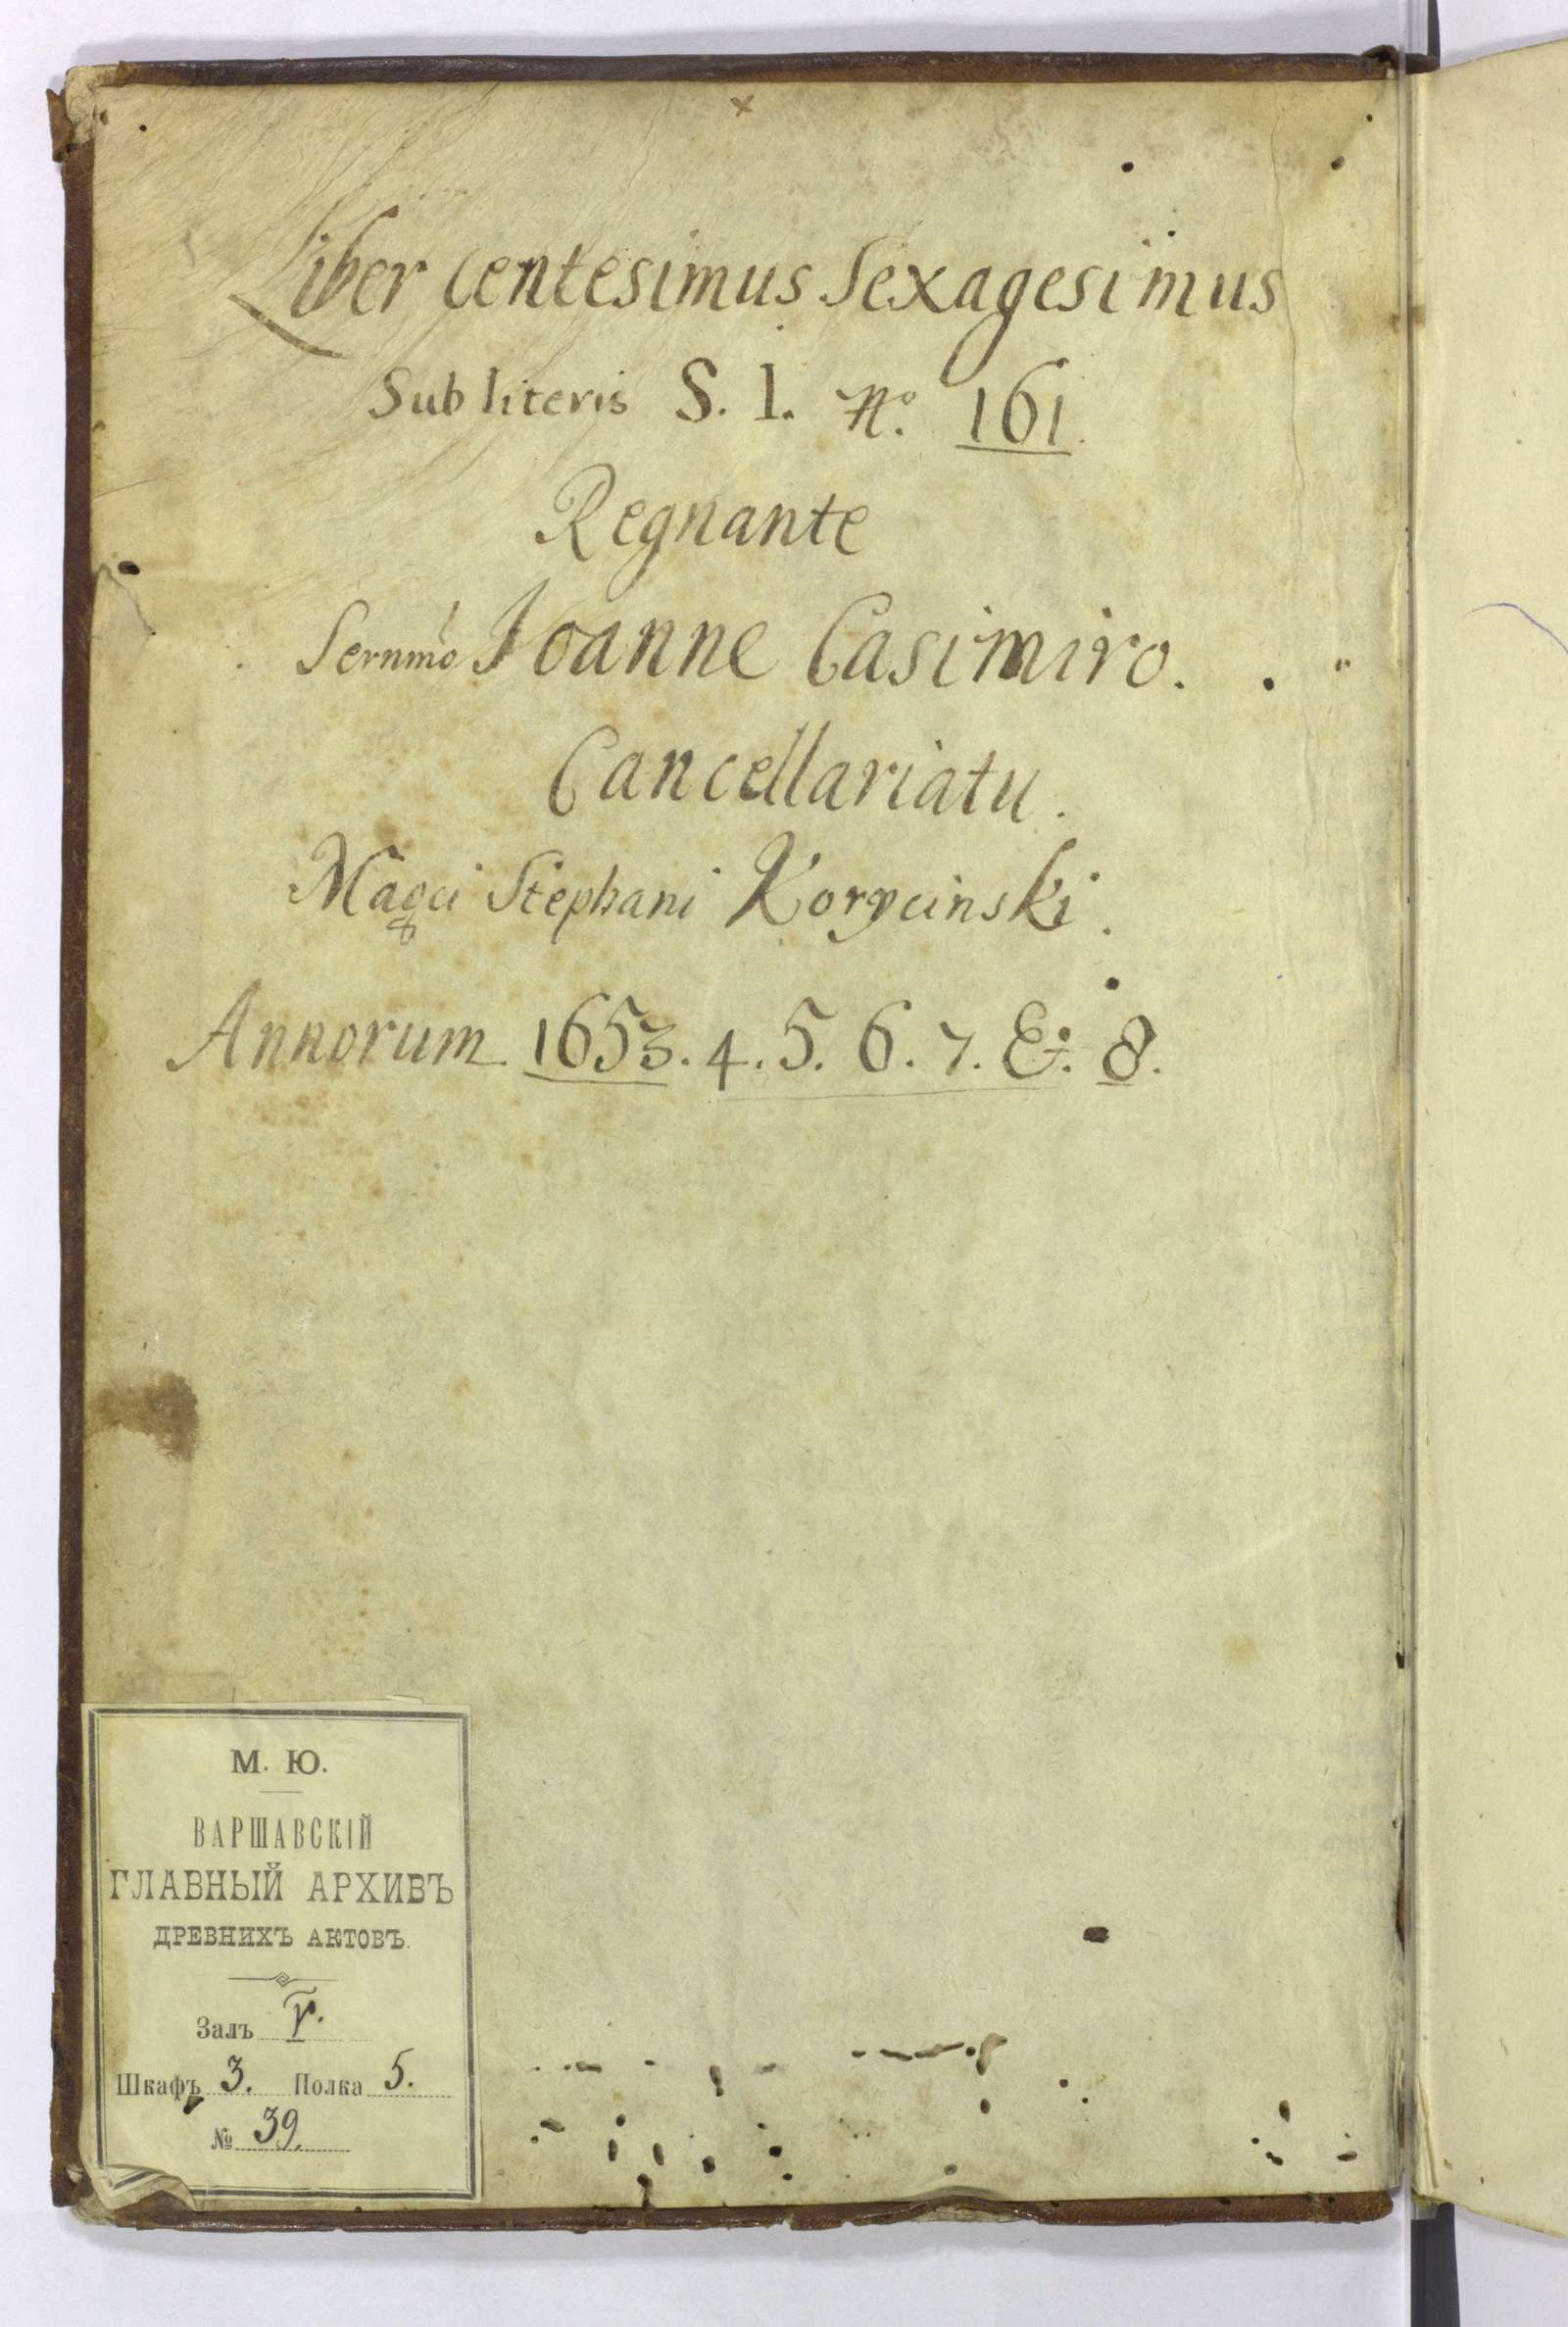 Liber Centesimus Sexagesimus
Sub literis S. 1. No. 161.
Regnante
Sernmo Joanne Casimiro.
Cancellariatu.
Magci Stephani Korycinski.
Annorum 1653. 4. 5. 6. 7. &. 8.
М. Ю.
ВАРШАВСКІЙ
ГЛАВНЫЙ АРХИВЪ
ДРЕВНИХЪ АКТОВЪ.
Залъ
Шкафъ 3. Полка 5.
№ 39.